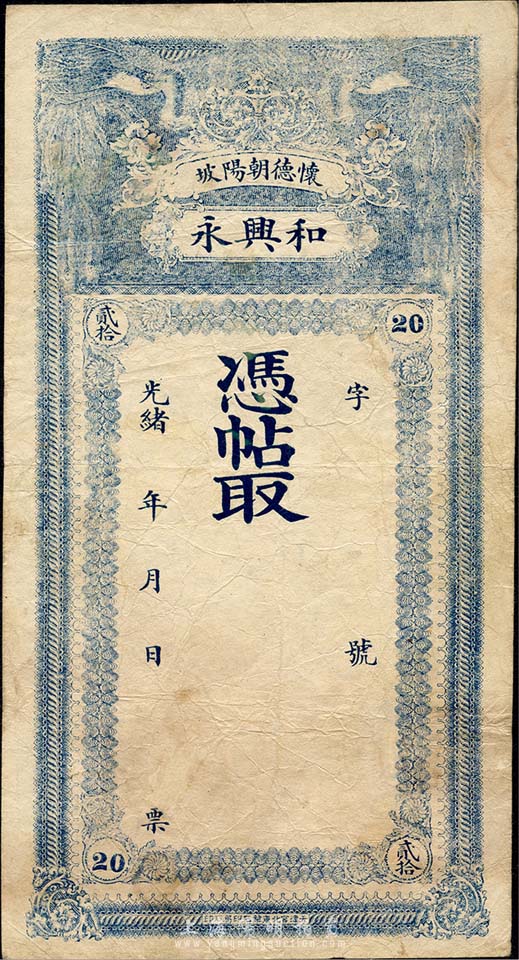 懷德朝陽坡
和興永
貳拾
20
字
號
憑帖取
光緒
年
月
日
票
20
貳拾
www.yangmingauction.com